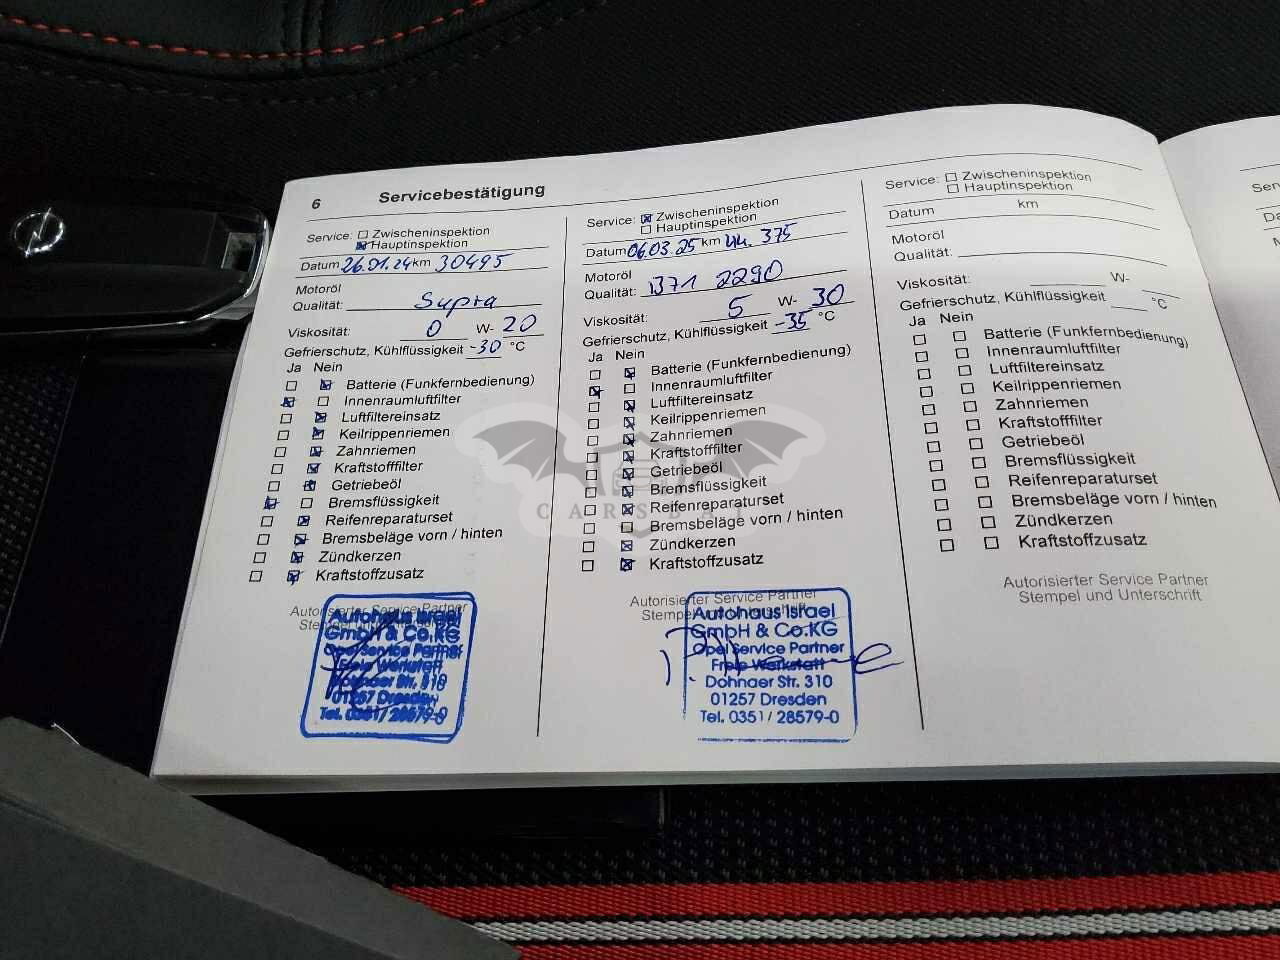 6 Servicebestätigung
Service: Zwischeninspektion
Hauptinspektion
Datum 26.01.24 km 30495
Motoröl
Qualität: Supra
Viskosität: 0 W- 20
Gefrierschutz, Kühlflüssigkeit -30 °C
Ja Nein
Batterie (Funkfernbedienung)
Innenraumluftfilter
Luftfiltereinsatz
Keilrippenriemen
Zahnriemen
Kraftstofffilter
Getriebeöl
Bremsflüssigkeit
Reifenreparaturset
Bremsbeläge vorn / hinten
Zündkerzen
Kraftstoffzusatz
Autorisierter Service Partner
Autohaus Israel
GmbH & Co.KG
Opel Service Partner
Freie Werkstatt
Dohnaer Str. 310
01257 Dresden
Tel. 0351/ 28579-0
Service: Zwischeninspektion
Hauptinspektion
Datum 06.03.25 km 44.375
Motoröl
Qualität: 2290
Viskosität: 5 W- 30
Gefrierschutz, Kühlflüssigkeit -35 °C
Ja Nein
Batterie (Funkfernbedienung)
Innenraumluftfilter
Luftfiltereinsatz
Keilrippenriemen
Zahnriemen
Kraftstofffilter
Getriebeöl
Bremsflüssigkeit
Reifenreparaturset
Bremsbeläge vorn / hinten
Zündkerzen
Kraftstoffzusatz
Autorisierter Service Partner
Autohaus Israel
GmbH & Co.KG
Opel Service Partner
Freie Werkstatt
Dohnaer Str. 310
01257 Dresden
Tel. 0351 / 28579-0
Service: Zwischeninspektion
Hauptinspektion
Datum km
Motoröl
Qualität:
Viskosität: W-
Gefrierschutz, Kühlflüssigkeit °C
Ja Nein
Batterie (Funkfernbedienung)
Innenraumluftfilter
Luftfiltereinsatz
Keilrippenriemen
Zahnriemen
Kraftstofffilter
Getriebeöl
Bremsflüssigkeit
Reifenreparaturset
Bremsbeläge vorn / hinten
Zündkerzen
Kraftstoffzusatz
Autorisierter Service Partner
Stempel und Unterschrift
CARSBAT